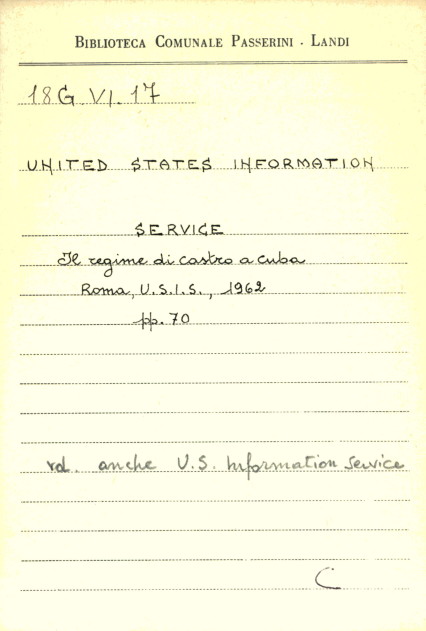 BIBLIOTECA COMUNALE PASSERINI - LANDI
18G.VI.17
UNITED STATES INFORMATION
SERVICE
Il regime di castro a cuba
Roma, U.S.I.S., 1962
pp. 70
vd. anche U.S. Information Service
C